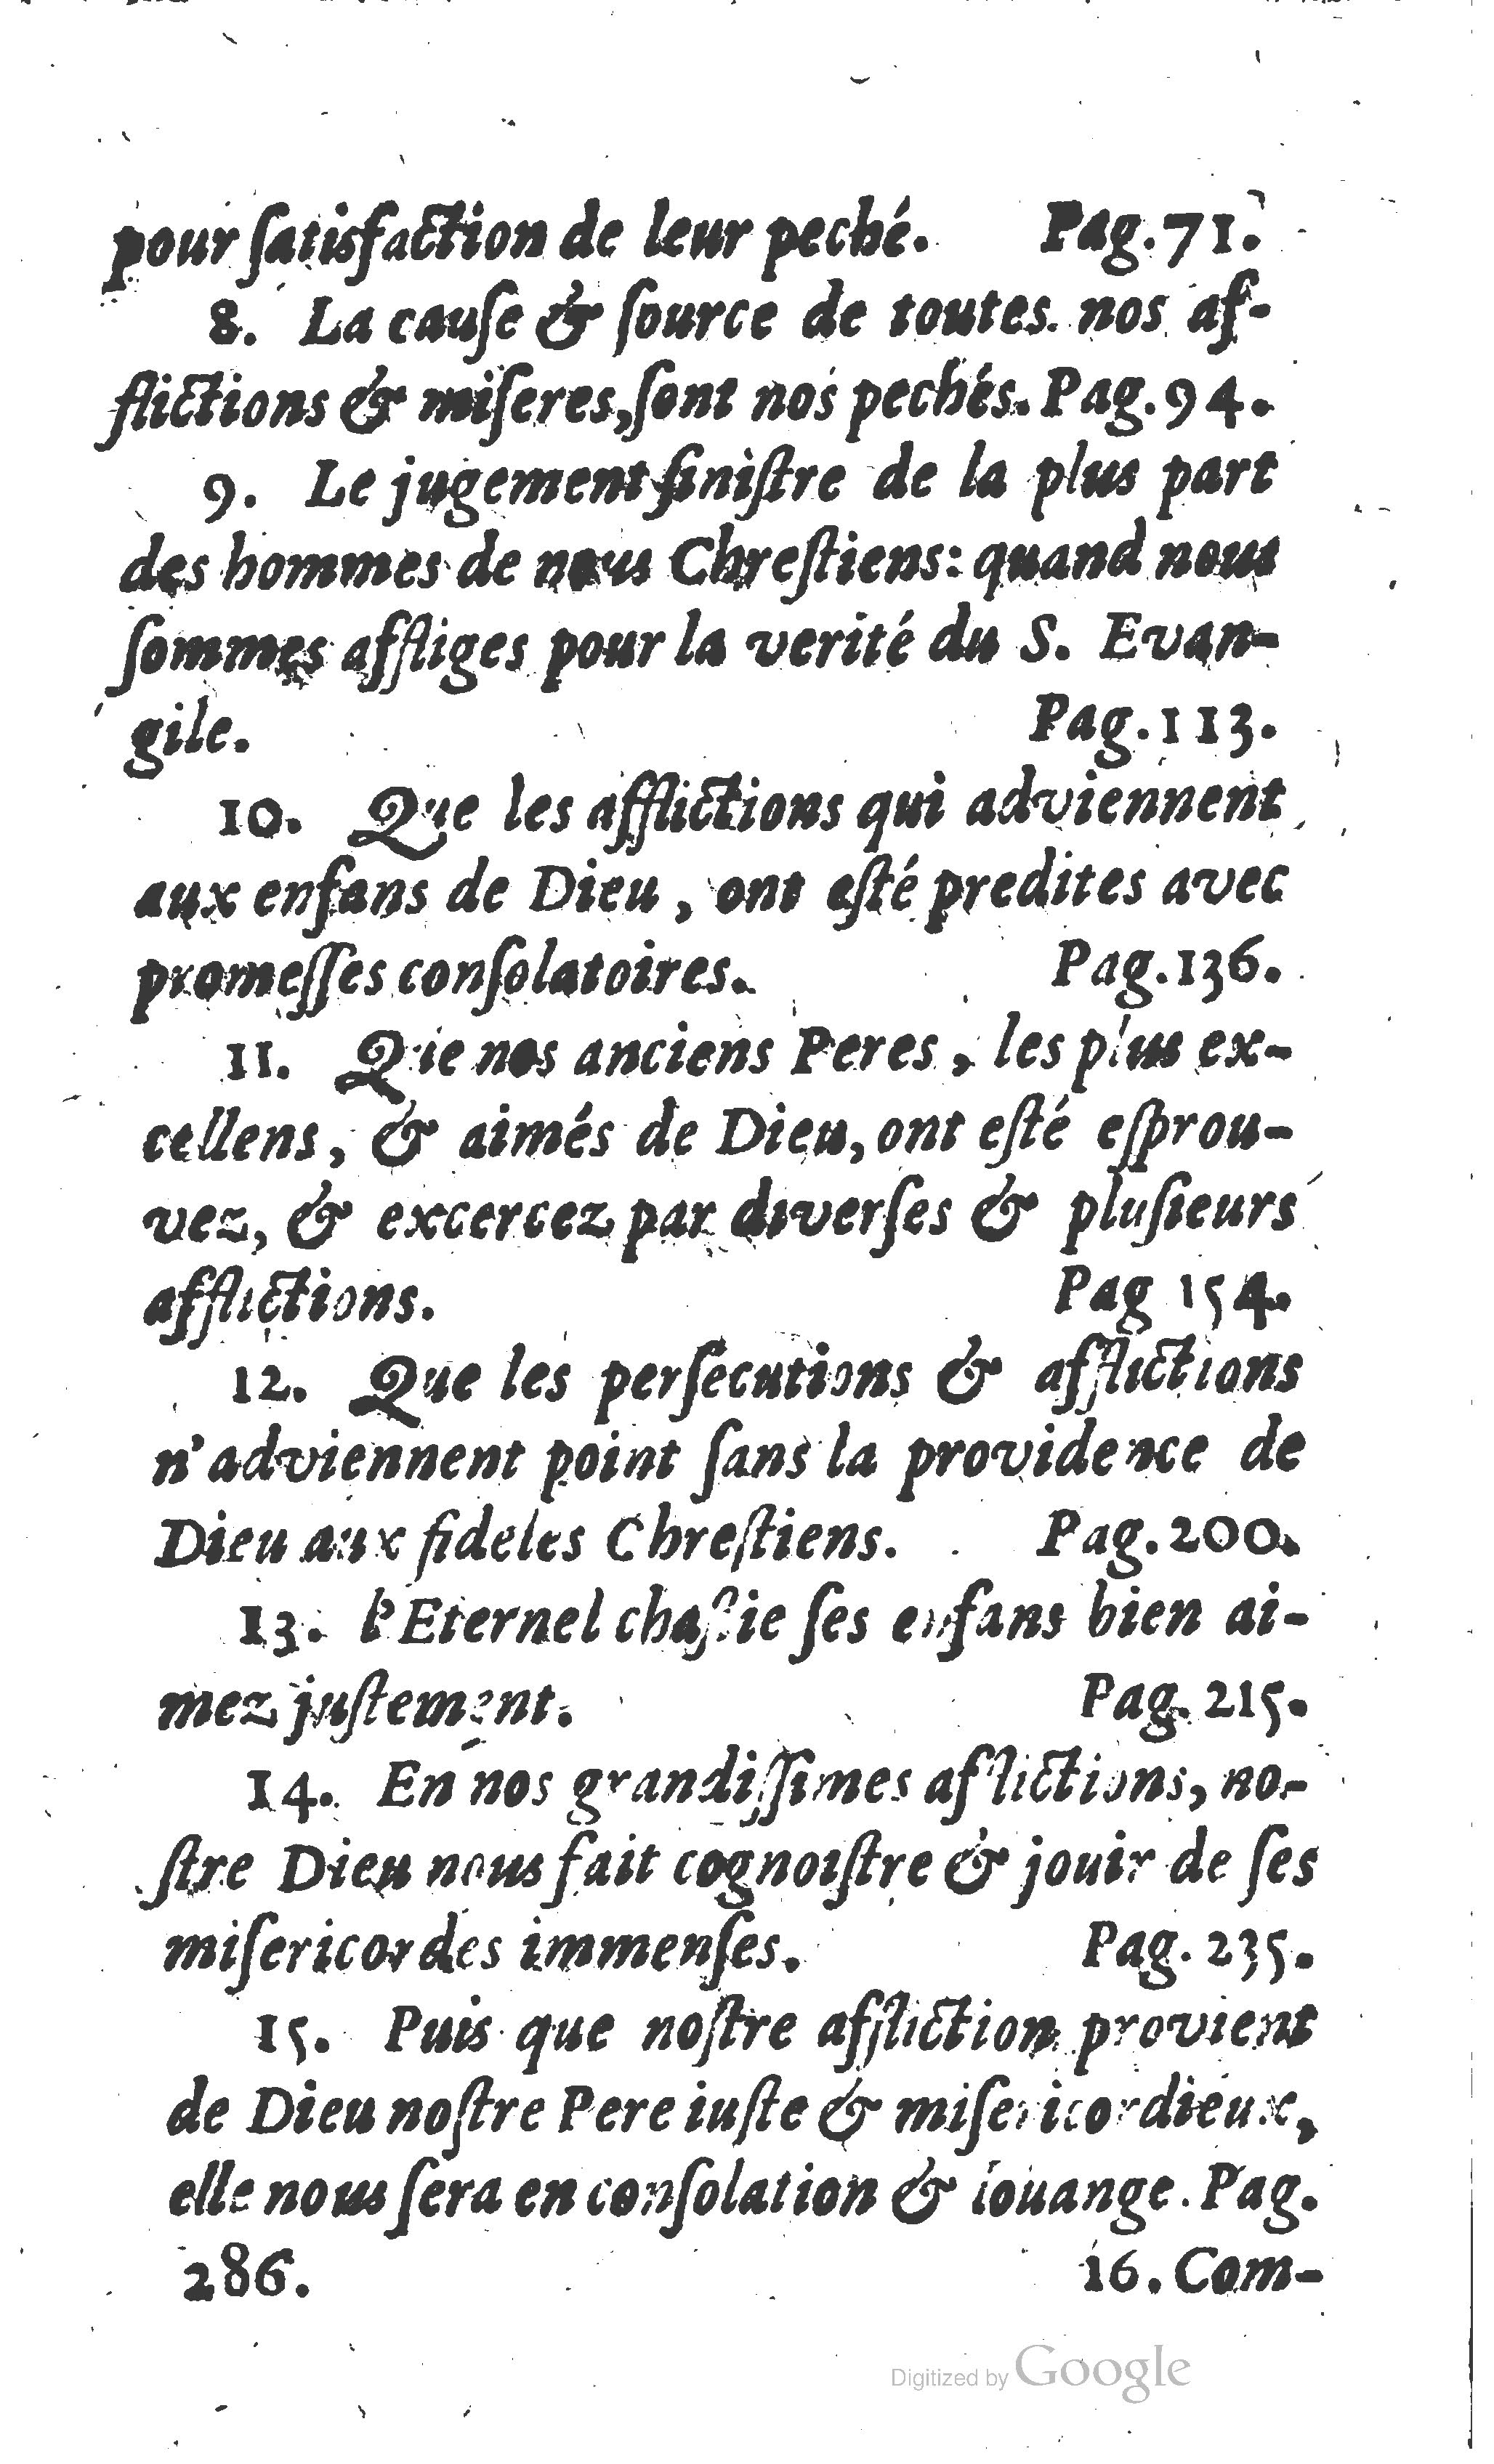 pour ſatisfaction de leur peché. Pag. 71.
8. La cauſe & ſource de toutes nos af-
flictions & miſeres, ſont nos pechés. Pag. 94.
9. Le jugement ſiniſtre de la plus part
des hommes de nous Chreſtiens: quand nous
ſommes affliges pour la verité du S. Evan-
gile. Pag. 113.
10. Que les afflictions qui adviennent
aux enfans de Dieu, ont eſté predites avec
promeſſes conſolatoires. Pag. 136.
11. Que nos anciens Peres, les plus ex-
cellens, & aimés de Dieu, ont eſté eſprou-
vez, & excercez par diverſes & pluſieurs
afflictions. Pag 154.
12. Que les perſecutions & afflictions
n'adviennent point ſans la providence de
Dieu aux fideles Chreſtiens. Pag. 200.
13. l'Eternel chaſtie ſes enfans bien ai-
mez juſtement. Pag. 215.
14. En nos grandiſſimes aflictions, no-
ſtre Dieu nous fait cognoiſtre & jouir de ſes
miſericordes immenſes. Pag. 235.
15. Puis que noſtre affliction provient
de Dieu noſtre Pere iuſte & miſericordieux,
elle nous ſera en conſolation & louange. Pag.
286. 16. Com-
Digitized by Google